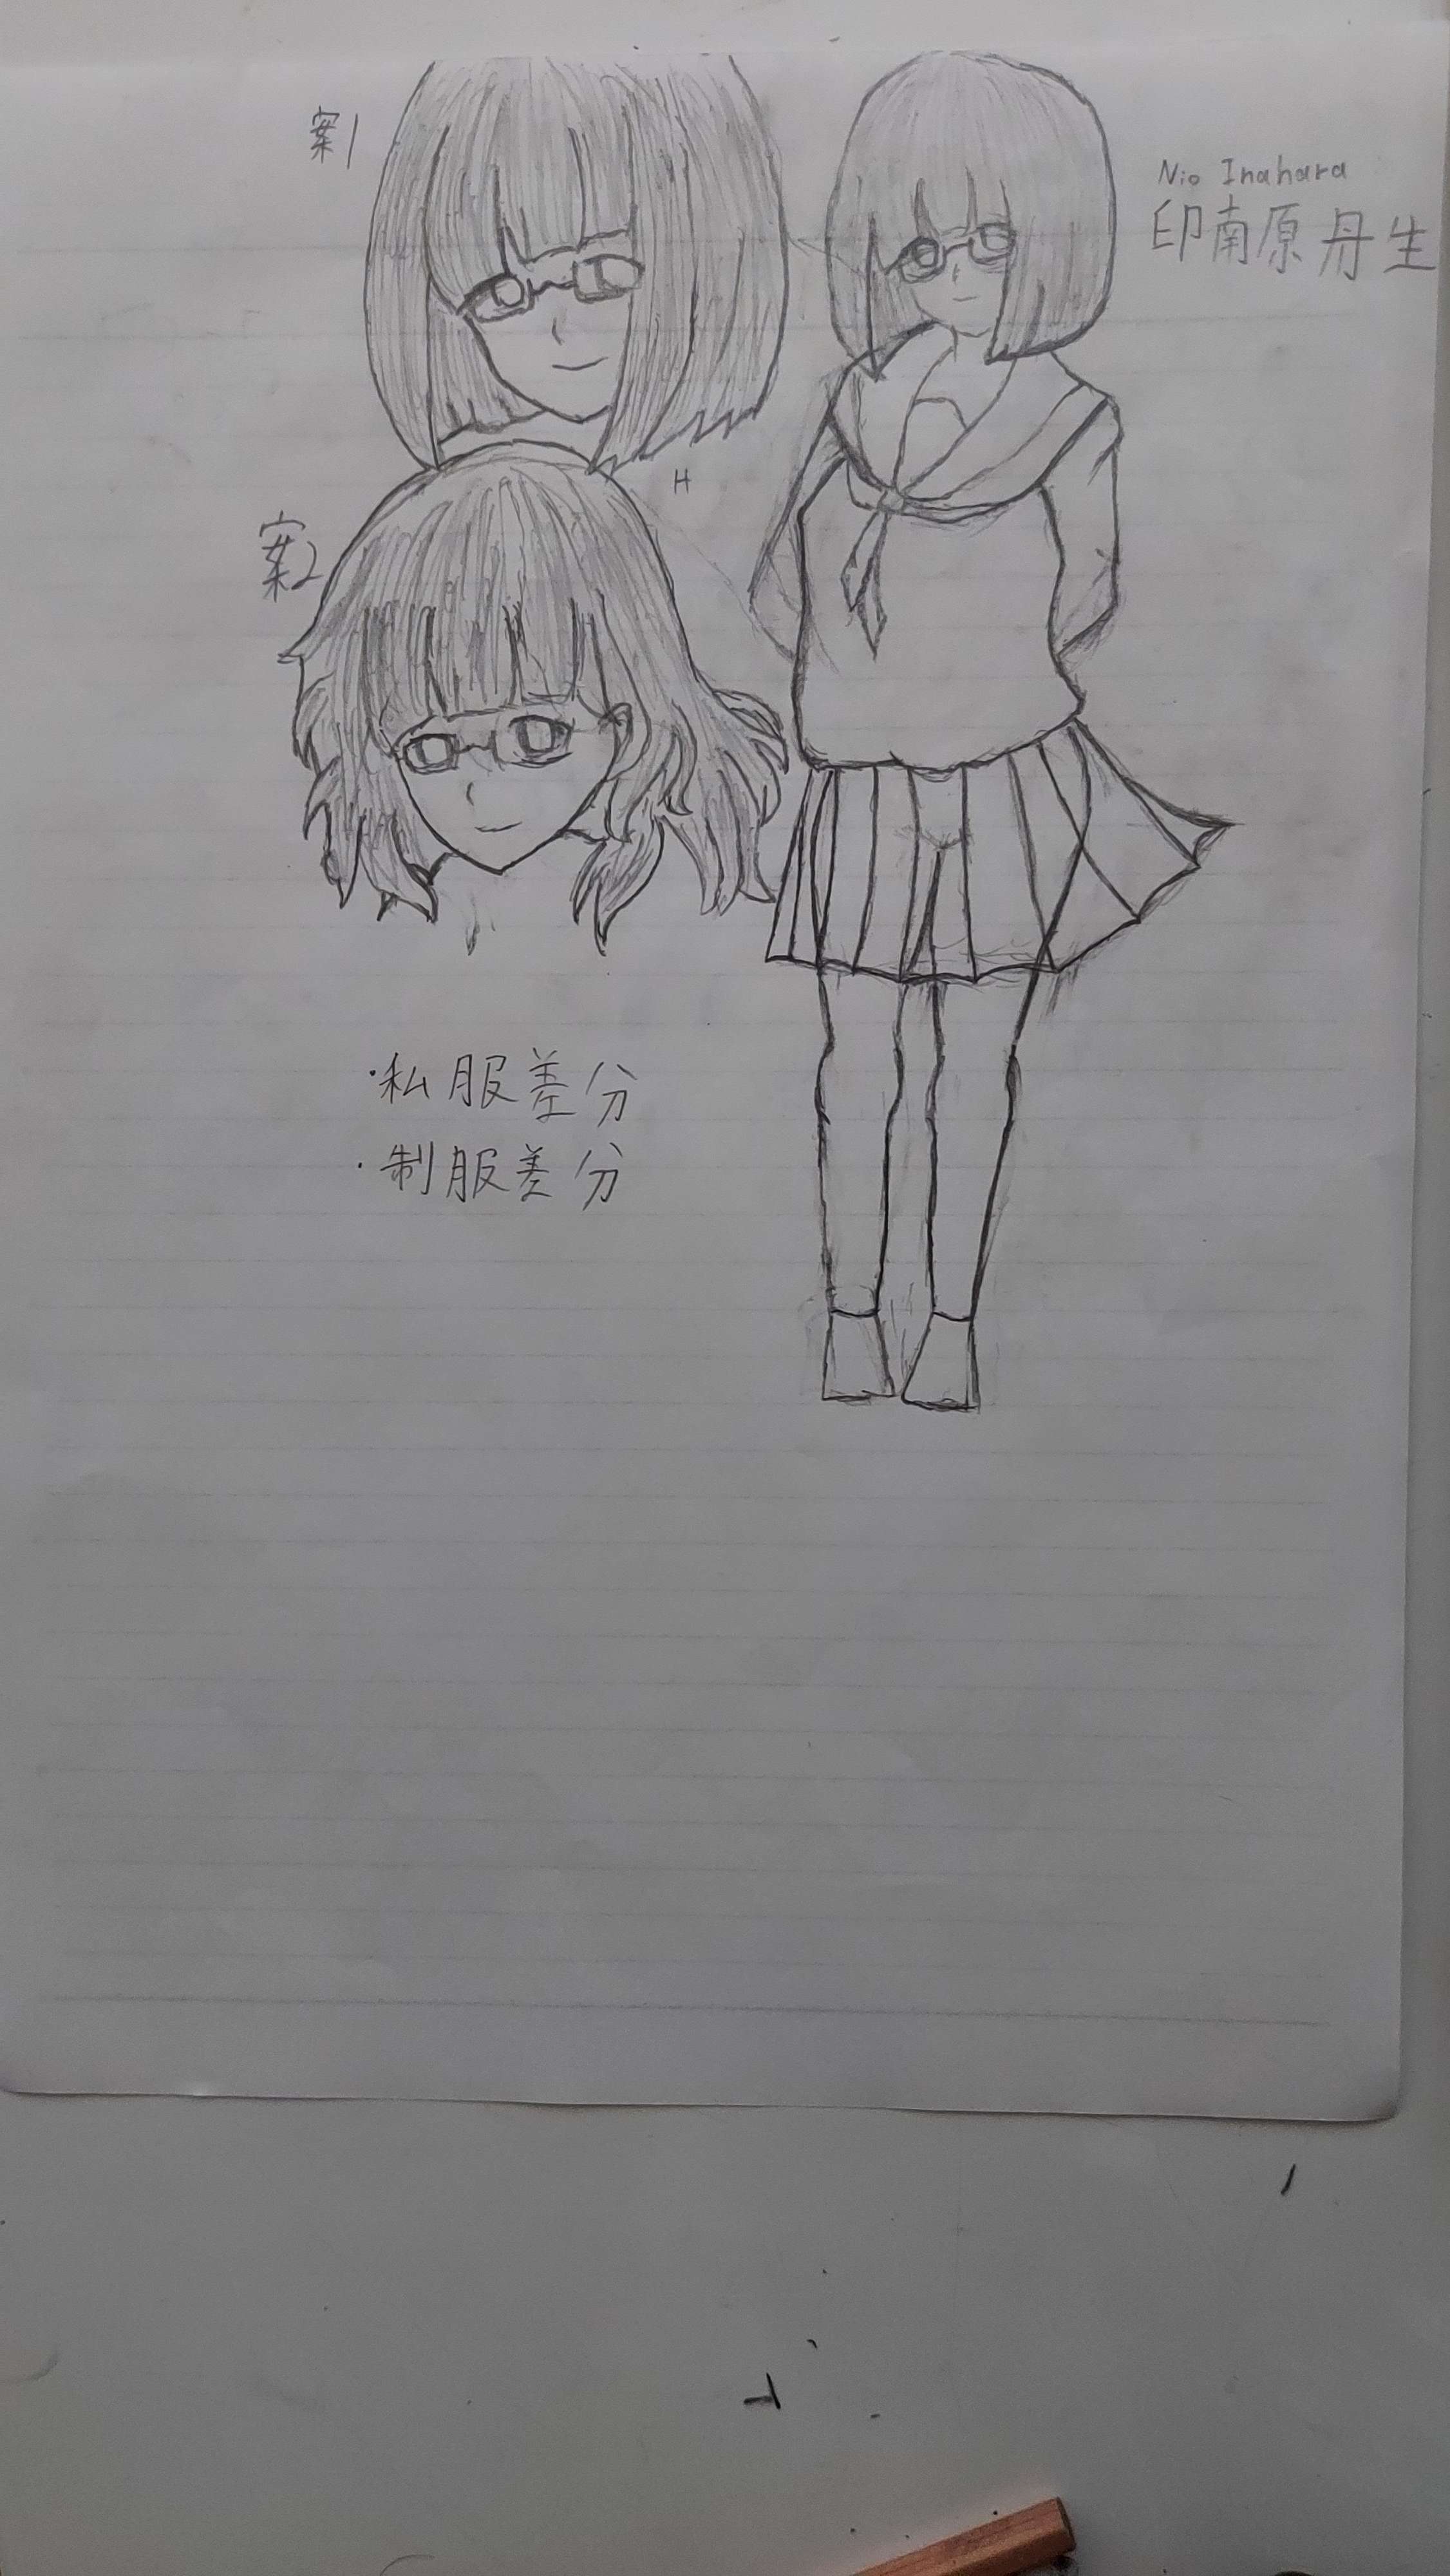 案1
Nio Inahara
印南原丹生
H
案2
・私服差分
・制服差分